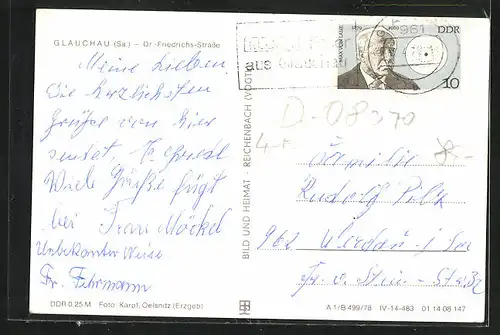 GLAUCHAU (Sa.) – Dr.-Friedrichs-Straße
Meine Lieben
Die herzlichsten
Grüße von hier
sendet
Viele Grüße fügt
bei Frau Möckel
Unbekannter Weise
Fr. Fehrmann
DDR 0,25 M Foto: Karpf, Oelsnitz (Erzgeb)
BILD UND HEIMAT · REICHENBACH (VOGTL
MAX VON LAUE
DDR
10
961
aus
D-08370
4,-
8,-
Familie
Rudolf
962 Werdau i. Sa
Fr. v. Stein-Str.
A 1/B 499/78 IV-14-483 01 14 08 147